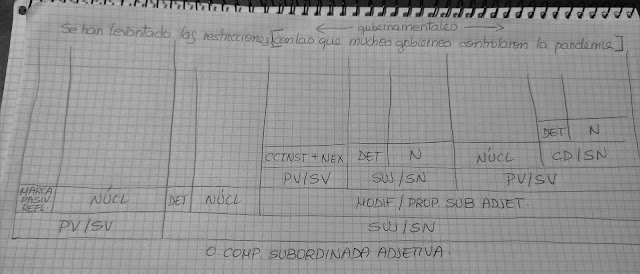 ← gubernamentales →
Se han levantado las restricciones [con las que muchos gobiernos controlaron la pandemia].
DET N
CCINST + NEX DET N NÚCL CD/SN
PV/SV SUJ/SN PV/SV
MARCA PASIV. REFL. NÚCL DET NÚCL MODIF/PROP. SUB ADJET.
PV/SV SUJ/SN
O. COMP SUBORDINADA ADJETIVA.